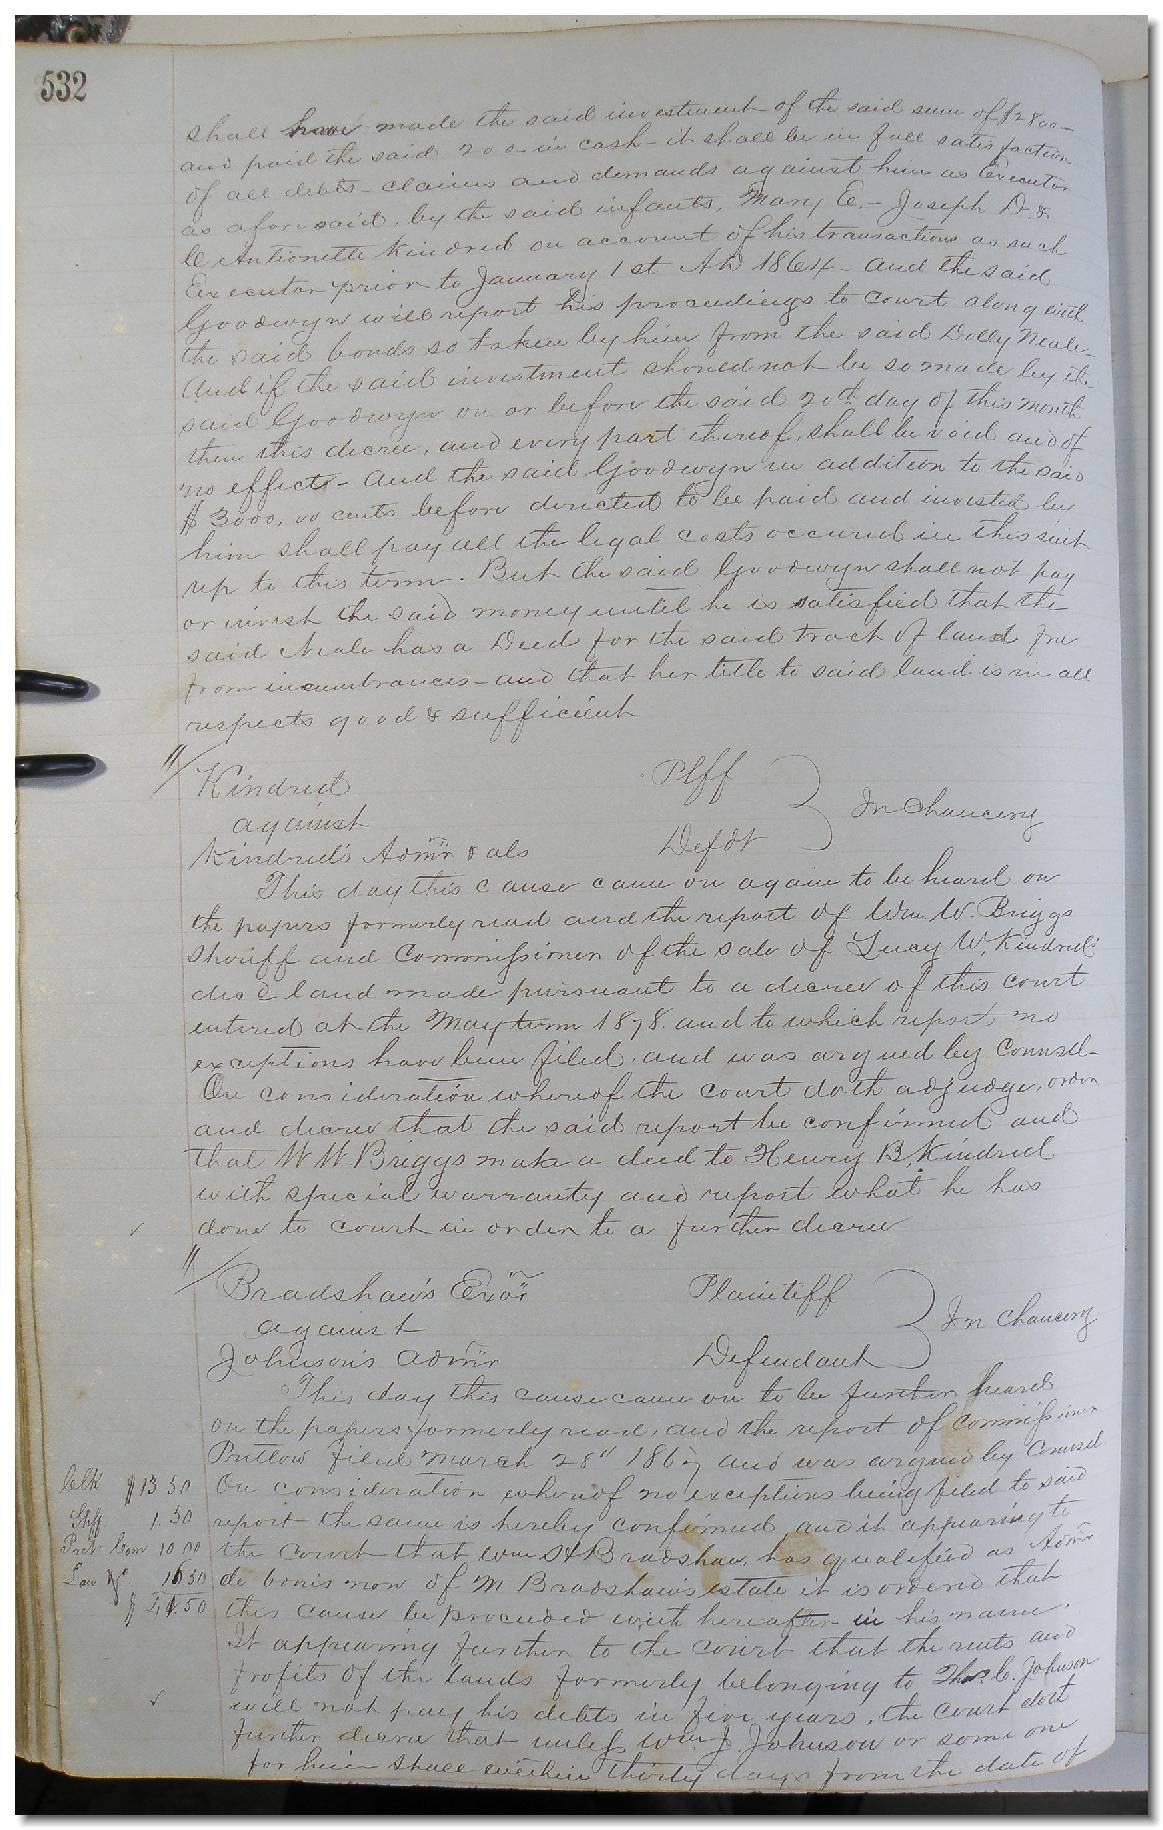 532
shall have made the said investment of the said sum of $2800-
and paid the said 200 in cash - it shall be in full satisfaction
of all debts - claims and demands against him as Executor
as aforesaid, by the said infants, Mary E. - Joseph D. &
C Antionette Kindred on account of his transactions as such
Executor prior to January 1st AD 1864 - And the said
Goodwyn will report his proceedings to court along with
the said bonds so taken by him from the said Dolly Neale -
And if the said investment should not be so made by the
said Goodwyn on or before the said 20th day of this month
then this decree, and every part thereof, shall be void and of
no effect - And the said Goodwyn in addition to the said
$3000,00 cents before directed to be paid and invested by
him shall pay all the legal costs occured in this suit
up to this term. But the said Goodwyn shall not pay
or invest the said money until he is satisfied that the
said Neale has a Deed for the said tract of land free
from incumbrances - and that her title to said land is in all
respects good & sufficient
"/ Kindred Plff
against In Chancery
Kindred's Admr & als Defdt
This day this cause came on again to be heard on
the papers formerly read and the report of Wm W. Briggs
Sheriff and Commissioner of the sale of Lucy W. Kindred's
dec'd land made pursuant to a decree of this court
entered at the May term 1878. and to which report, no
exceptions have been filed, and was argued by Counsel -
On consideration whereof the court doth adjudge, order
and decree that the said report be confirmed and
that W W Briggs make a deed to Henry B. Kindred
with special warranty and report what he has
done to court in order to a further decree
"/ Bradshaw's Exor Plaintiff
against In Chancery
Johnson's Admr Defendant
This day this cause came on to be further heard
on the papers formerly read, and the report of Commissioner
Pretlow filed March 28" 1867 and was argued by Counsel
Clk $13 50 On consideration whereof no exceptions being filed to said
Shff 1.50 report the same is hereby confirmed and it appearing to
Pret Com 10 00 the Court that Wm H Bradshaw, has qualified as Admr
Law 16 50 de bonis non of M Bradshaw's estate it is ordered that
$ 41.50 this cause be proceeded with hereafter in his name.
It appearing further to the court that the rents and
profits of the lands formerly belonging to Thos. C. Johnson
will not pay his debts in five years, the court doth
further decree that unless Wm J. Johnson or some one
for him shall within thirty days from the date of